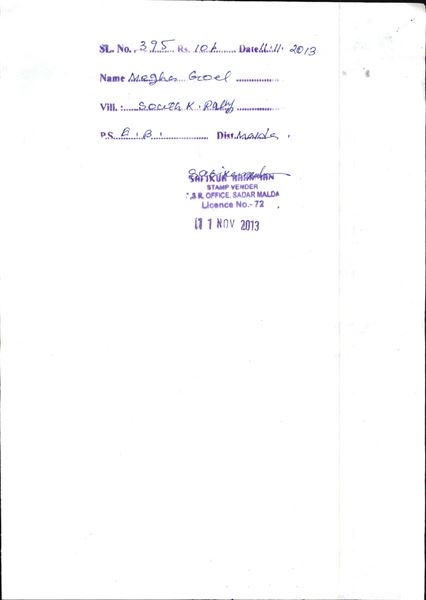 SL. No. 395 Rs. 10/- Date 11.11. 2013
Name Megha Goel
Vill. : South K. Pally
P.S. E. B. Dist. Malda.
SAFIKUR RAHAMAN
STAMP VENDER
S.R. OFFICE, SADAR MALDA
Licence No.- 72
11 NOV 2013